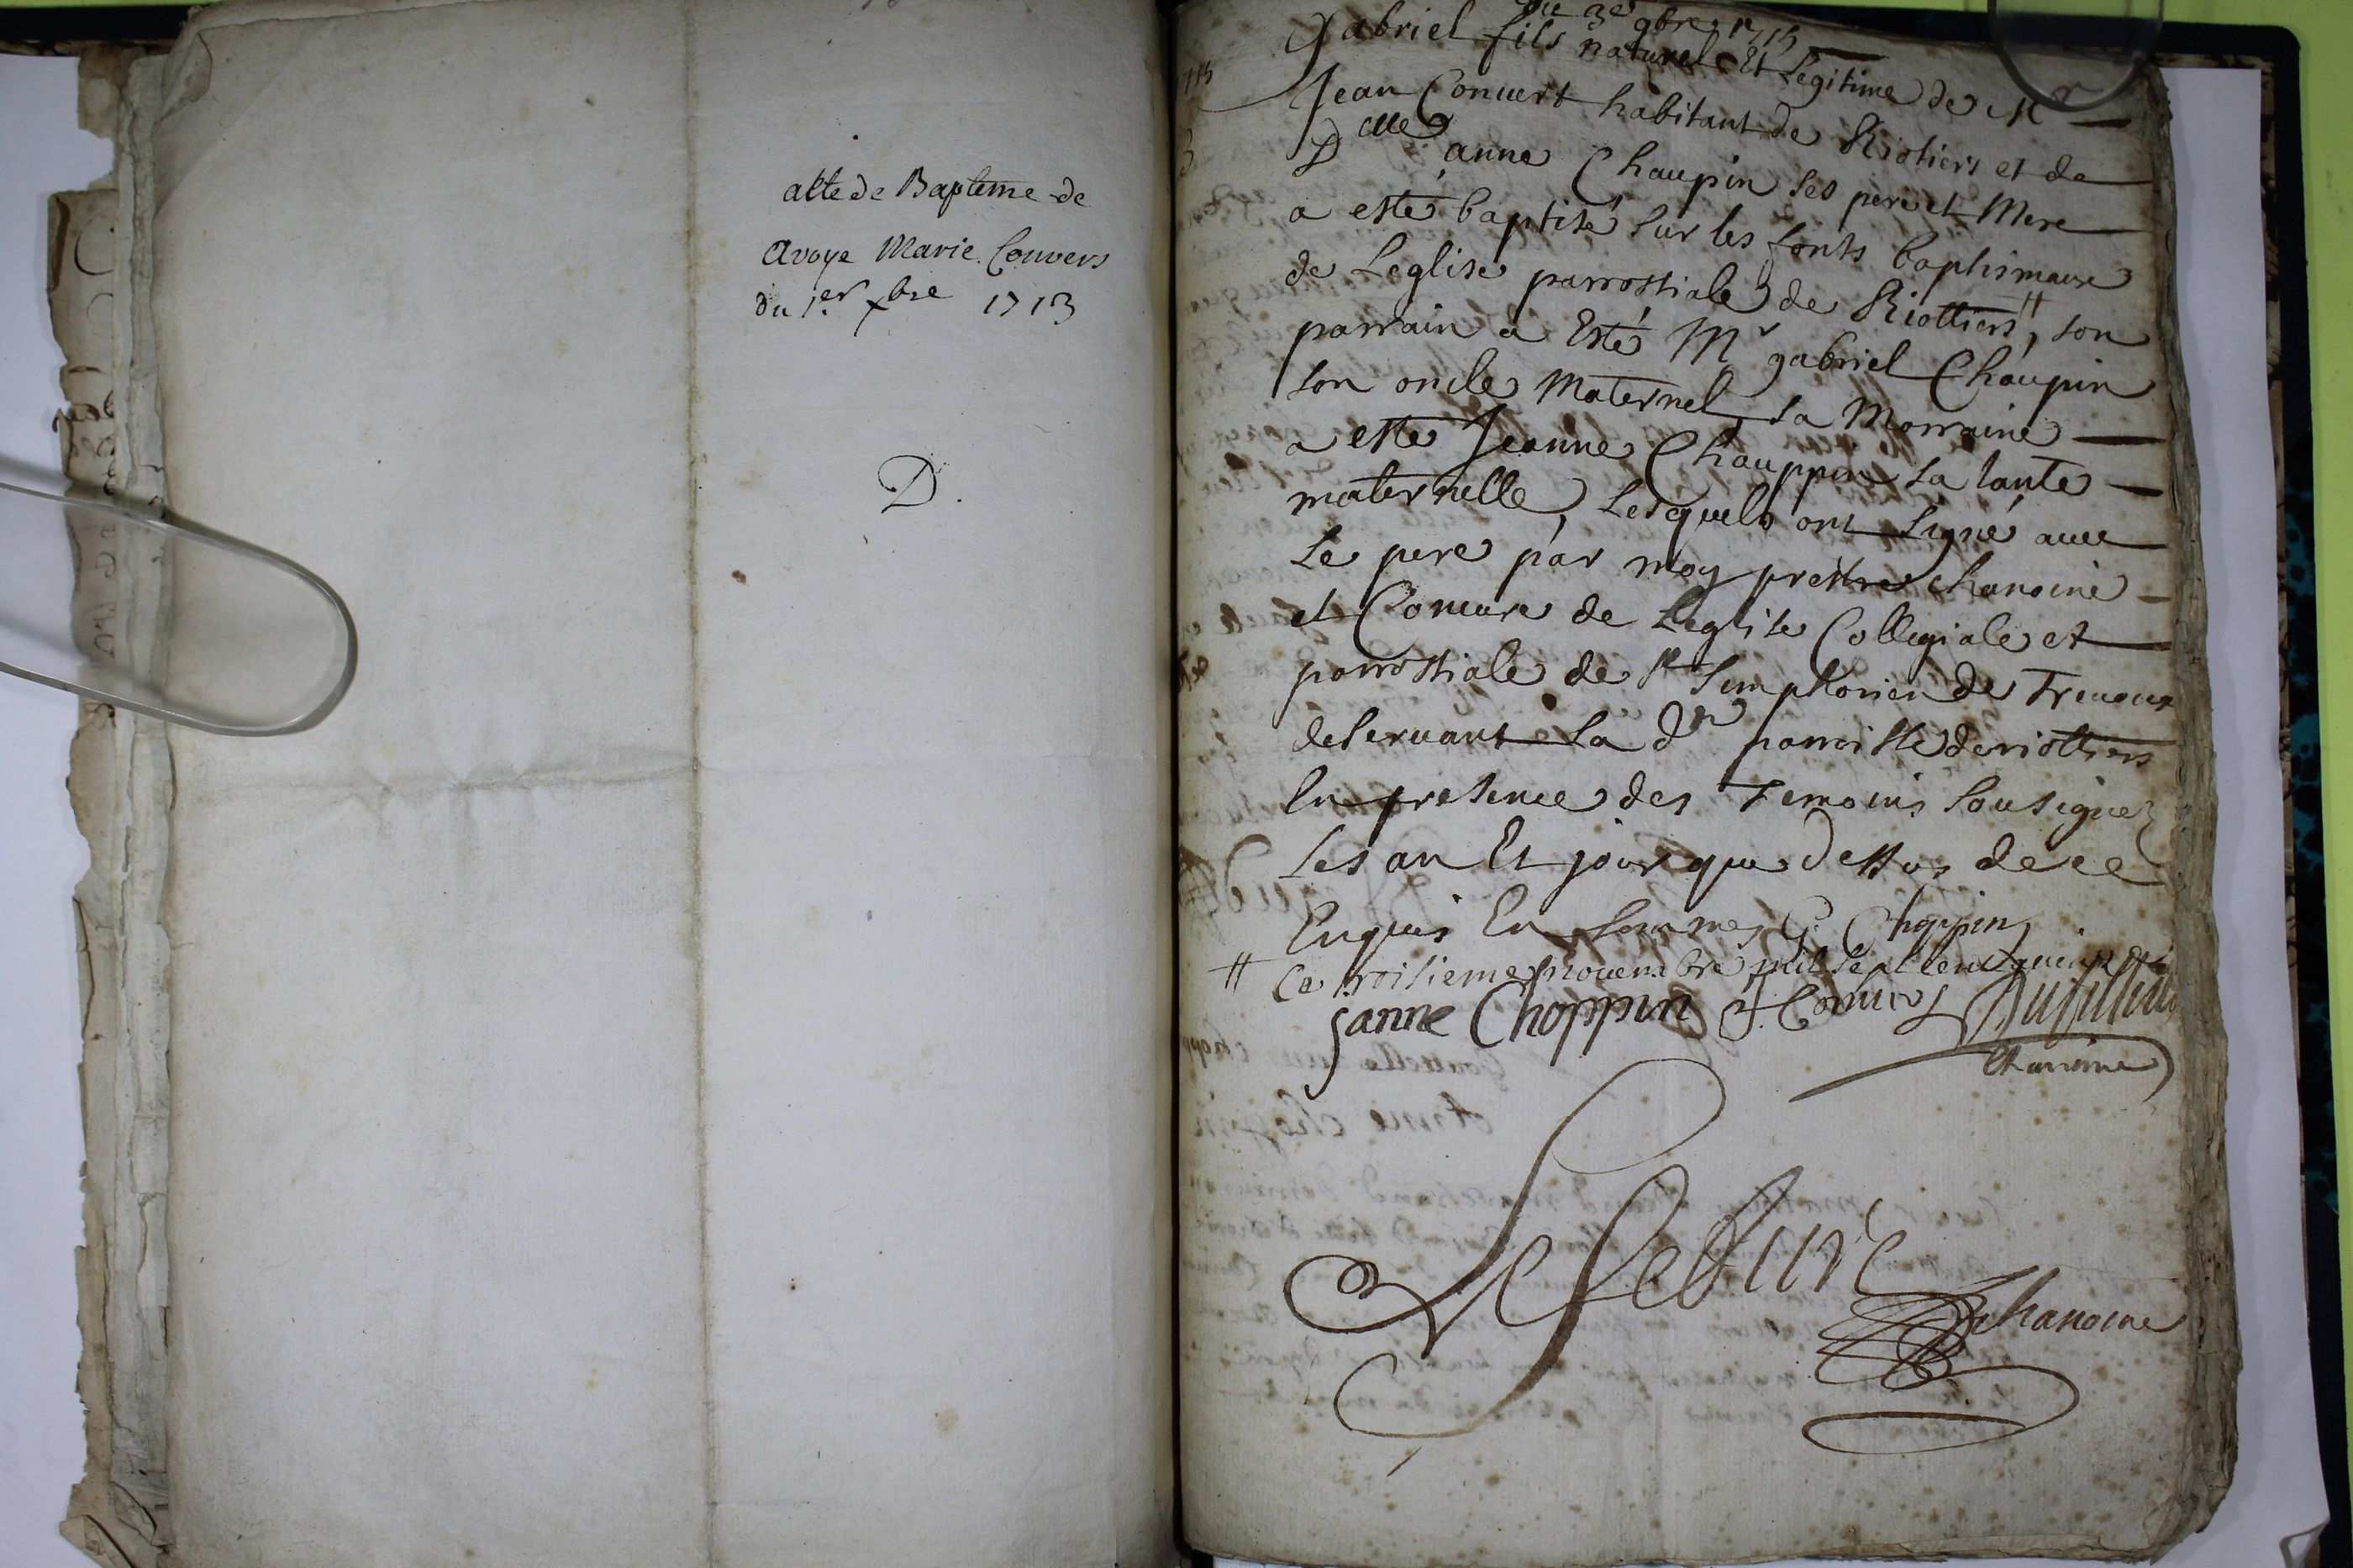 acte de Bapteme de
avoye Marie Convers
du 1.er xbre 1713
D.
Du 3e 9bre 1715
Gabriel fils naturel Et Legitime de Mr
Jean Conuert habitant de Riotiers et de
Delle anne Chaupin ses pere et Mere
a esté baptisé sur les fonts baptismaux
de Leglise parrossiale de Riottiers #, son
parrain a Esté Mr gabriel Chaupin
son oncle Maternel, sa Marraine
a esté Jeanne Chauppin sa tante
maternelle, Lesquels ont signé auec
Le pere par moy prestre chanoine
et Concure de Leglise Collegiale et
parrossiale de st Simphorien de Treuoux
deseruant La de parroisse de riottiers
En presence des Temoins sousignez
Les an Et jour que dessus de ce
Enquis En sommes G: Choppin
# Ce troisieme nouembre mil sept cent quinze
janne Choppin J. Conuers
Chanoine
Lefebure
chanoine